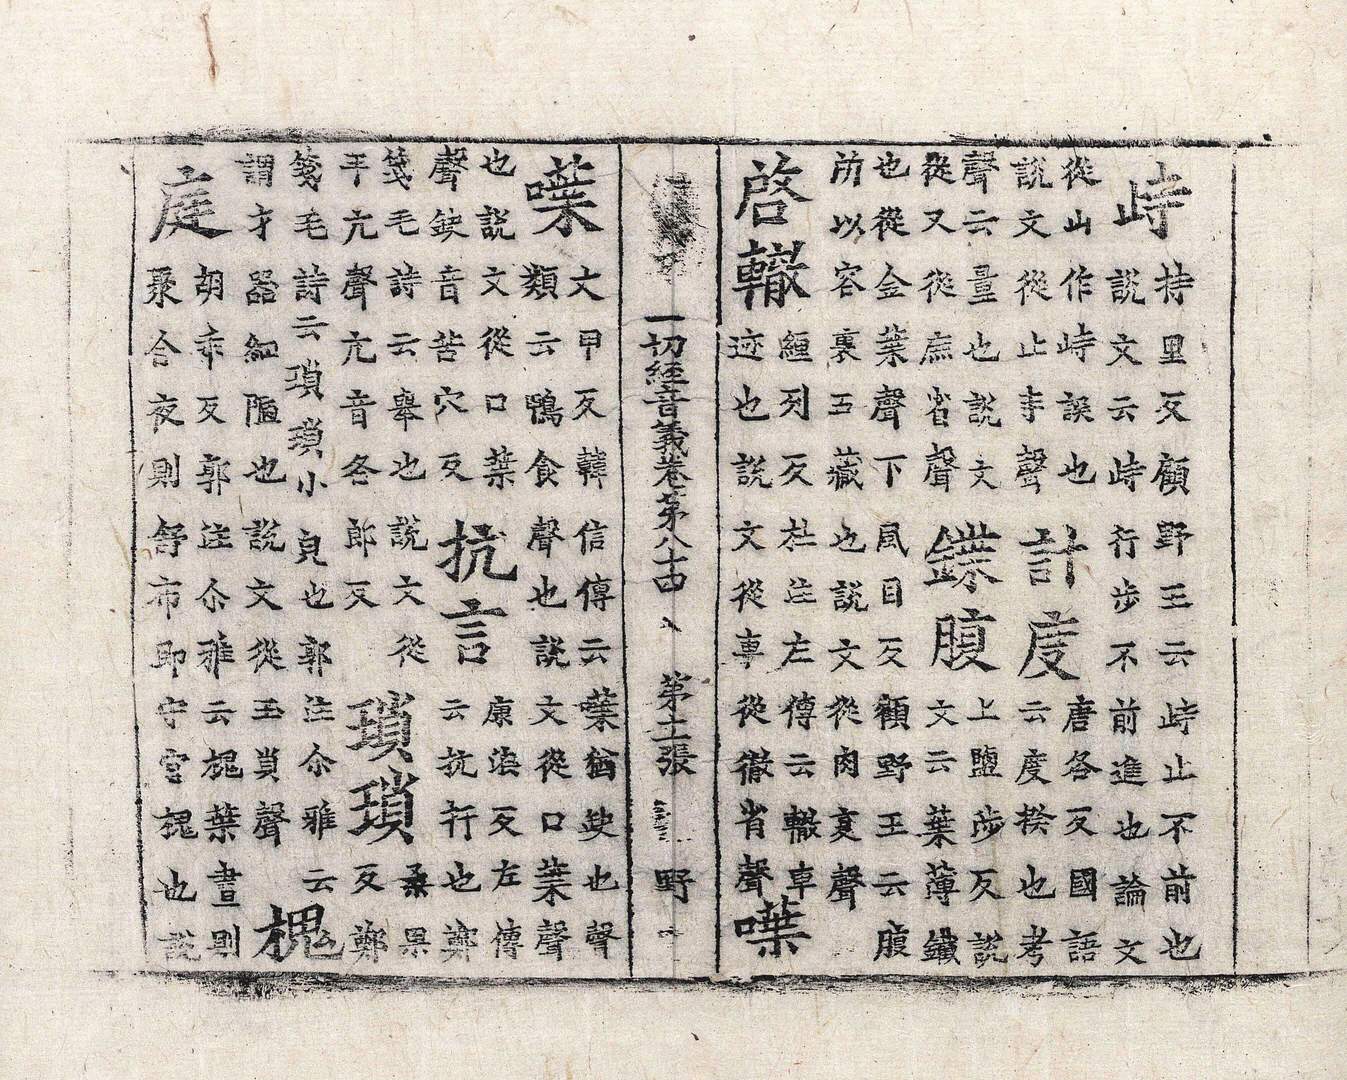 峙
持里反顧野王云峙止不前也
說文云峙行步不前進也論文
從山作峙誤也
說文從止寺聲
計度
唐各反國語
云度揆也考
聲云量也說文
從又從庶省聲
鍱腹
上鹽涉反說
文云葉薄鐵
也從金葉聲下風目反顧野王云腹
所以容裹五藏也說文從肉复聲
啓轍
纏列反杜注左傳云轍車
迹也說文從専從徹省聲
喋
一切經音義卷第八十四 第十二張 野
喋
大甲反韓信傳云喋猶缺也聲
類云鴨食聲也說文從口葉聲
也說文從口葉
聲缺音苦穴反
抗言
康浪反左傳
云抗行也鄭
箋毛詩云舉也說文從
手亢聲亢音各郎反
瑣瑣
桒果
反鄭
箋毛詩云瑣瑣小皃也郭注尒雅云
謂才器細陋也說文從玉𧴪聲
槐
庭
胡乖反郭注尒雅云槐葉晝則
聚合夜則舒布即守宮槐也說